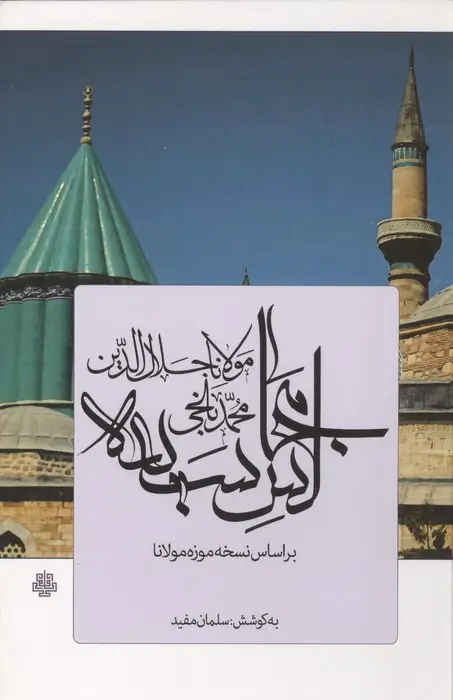 مولانا جلال‌الدین
محمد بلخی
مجالس سبعه
براساس نسخه موزه مولانا
به کوشش: سلمان مفید